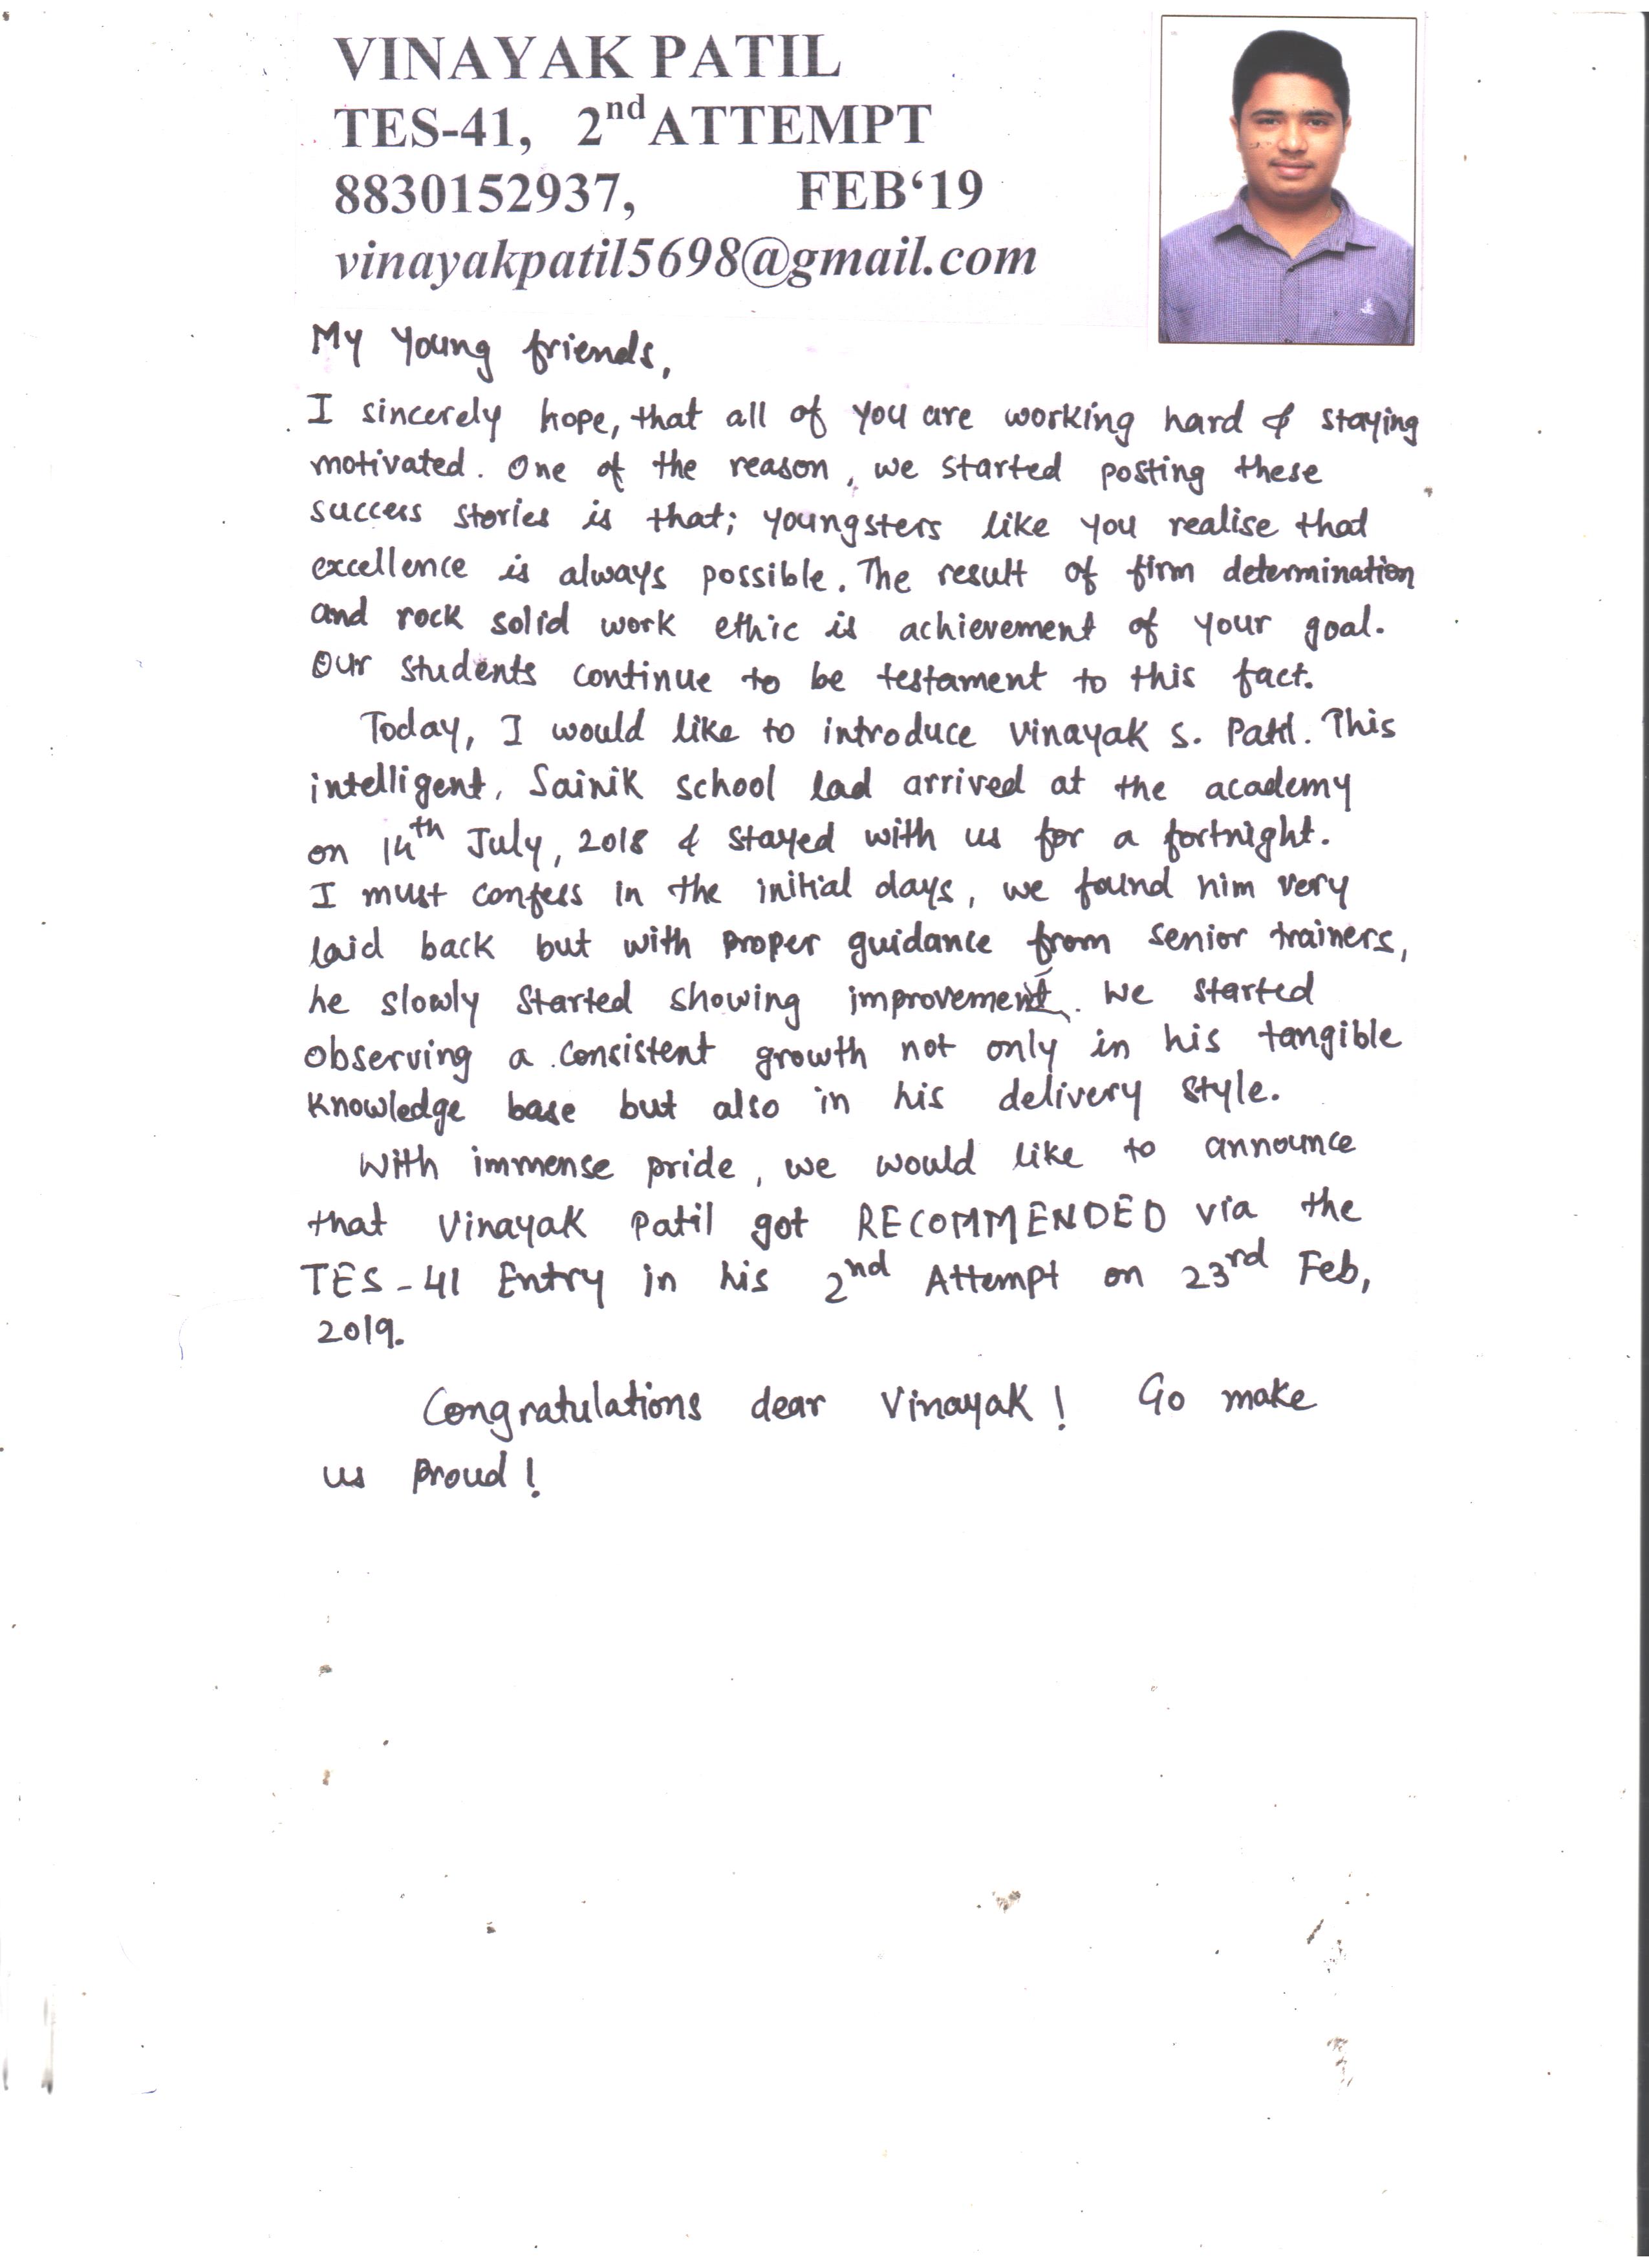 VINAYAK PATIL
TES-41, 2nd ATTEMPT
8830152937, FEB‘19
vinayakpatil5698@gmail.com
My Young friends,
I sincerely hope, that all of you are working hard & staying
motivated. One of the reason, we started posting these
success stories is that; youngsters like you realise that
excellence is always possible. The result of firm determination
and rock solid work ethic is achievement of your goal.
Our students continue to be testament to this fact.
Today, I would like to introduce Vinayak S. Patil. This
intelligent, Sainik school lad arrived at the academy
on 14th July, 2018 & stayed with us for a fortnight.
I must confess in the initial days, we found him very
laid back but with proper guidance from senior trainers,
he slowly started showing improvement. We started
observing a consistent growth not only in his tangible
knowledge base but also in his delivery style.
With immense pride, we would like to announce
that Vinayak Patil got RECOMMENDED via the
TES-41 Entry in his 2nd Attempt on 23rd Feb,
2019.
Congratulations dear Vinayak! Go make
us proud!